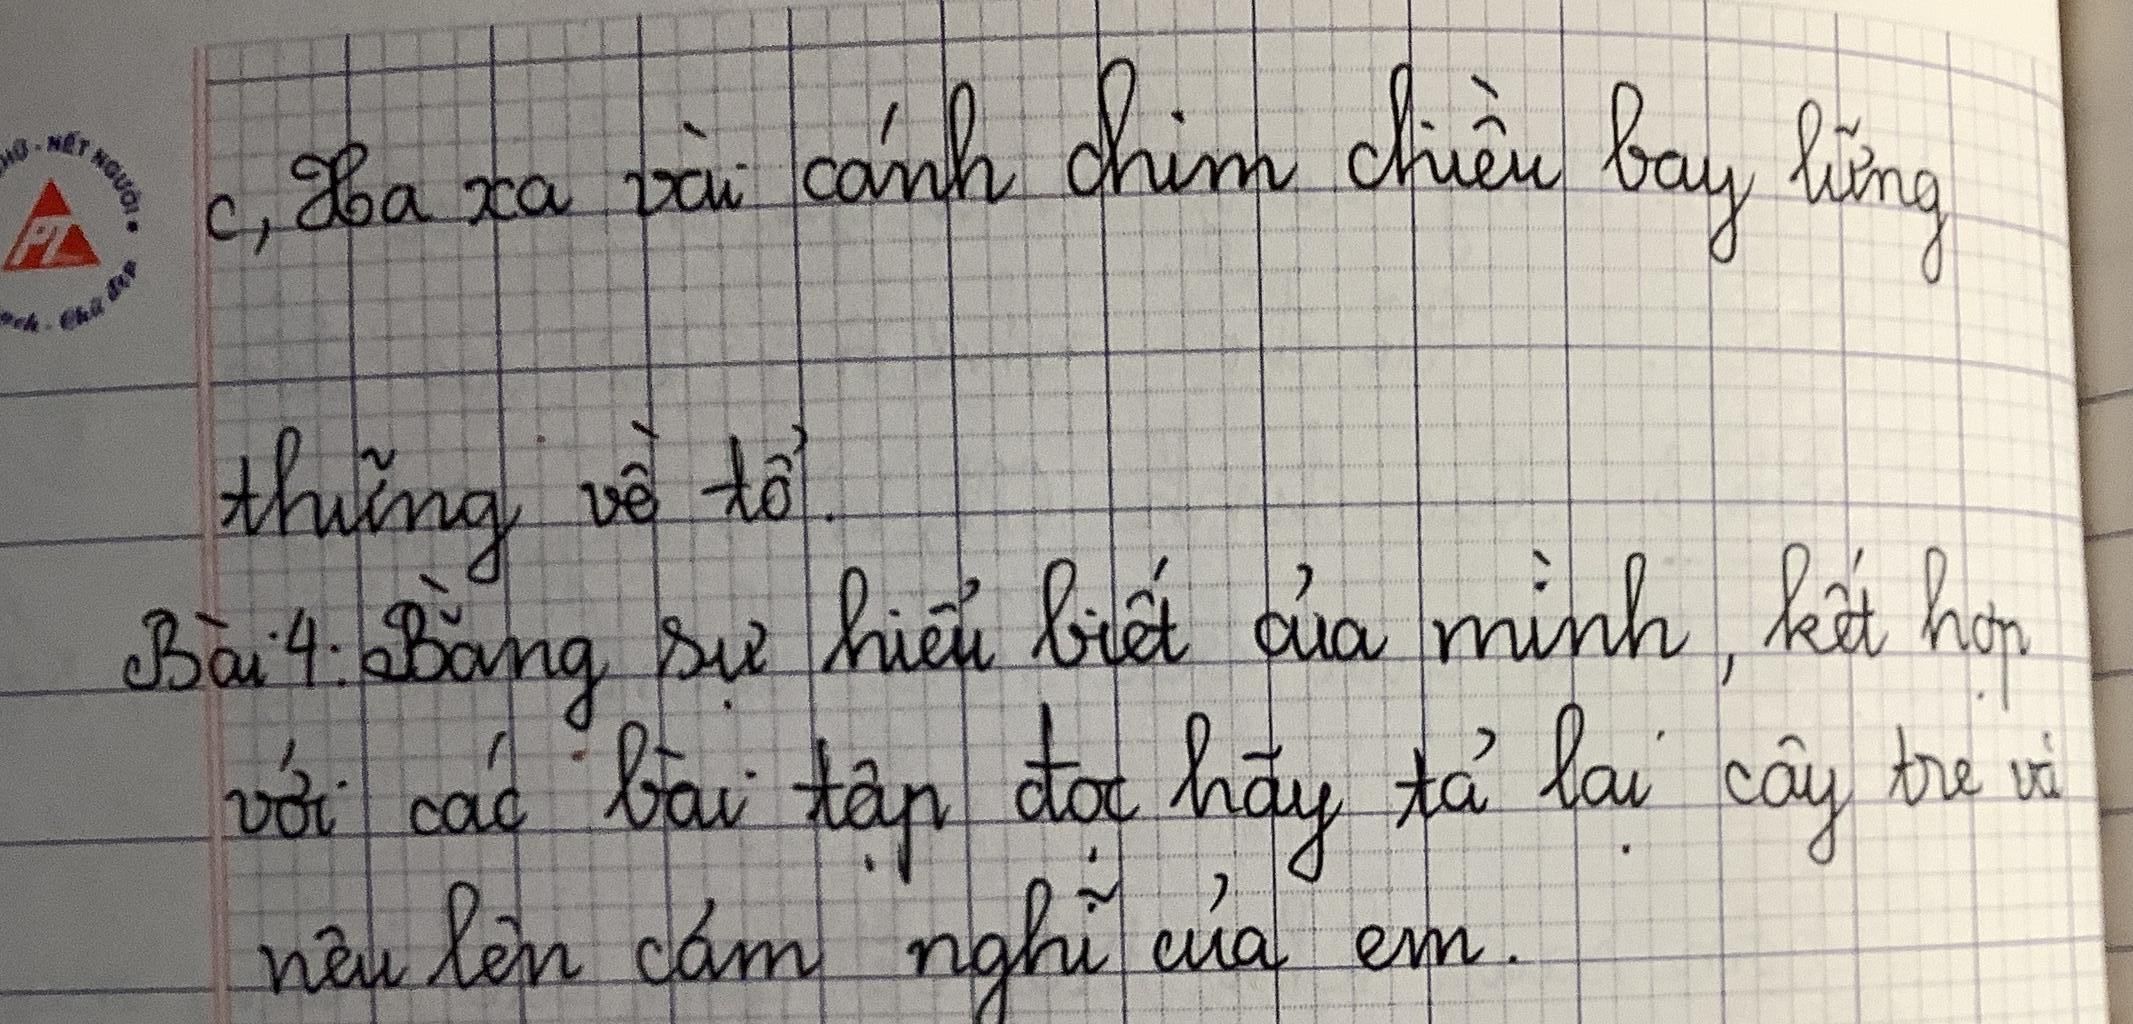 CHỮ - NẾT NGƯỜI
PL
Chữ đẹp
c, Xa xa vài cánh chim chiều bay lững
thững về tổ.
Bài 4: Bằng sự hiểu biết của mình, kết hợp
với các bài tập đọc hãy tả lại cây tre và
nêu lên cảm nghĩ của em.